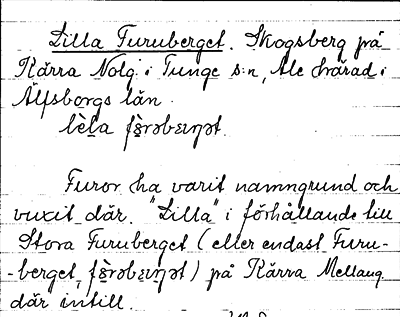 Lilla Furuberget. Skogsberg på
Kärra Nolg. i Tunge s:n, Ale härad i
Älfsborgs län.
lèla fʂ̀rəbærjət.
Furor ha varit namngrund och
vuxit där. "Lilla" i förhållande till
Stora Furuberget (eller endast Furu-
-berget, fʂ̀rəbærjət) på Kärra Mellang
där intill.